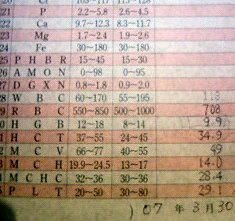 21 P 2.2~5.8 2.6~4.5
22 Ca 9.7~12.3 8.3~11.7
23 Mg 1.7~2.4 1.9~2.6
24 Fe 30~180 30~180
25 P H B R 15~45 15~30
26 A M O N 0~98 0~95
27 D G X N 0.8~1.8 0.9~2.0
28 W B C 60~170 55~195
29 R B C 550~850 500~1000
H G B 12~18 8~14 9.9
H C T 37~55 24~45 34.9
M C V 66~77 40~55 49
M C H 19.9~24.5 13~17 14.0
M C H C 32~36 30~36 28.4
P L T 20~50 30~80 29.1
) 07 年 3 月 30